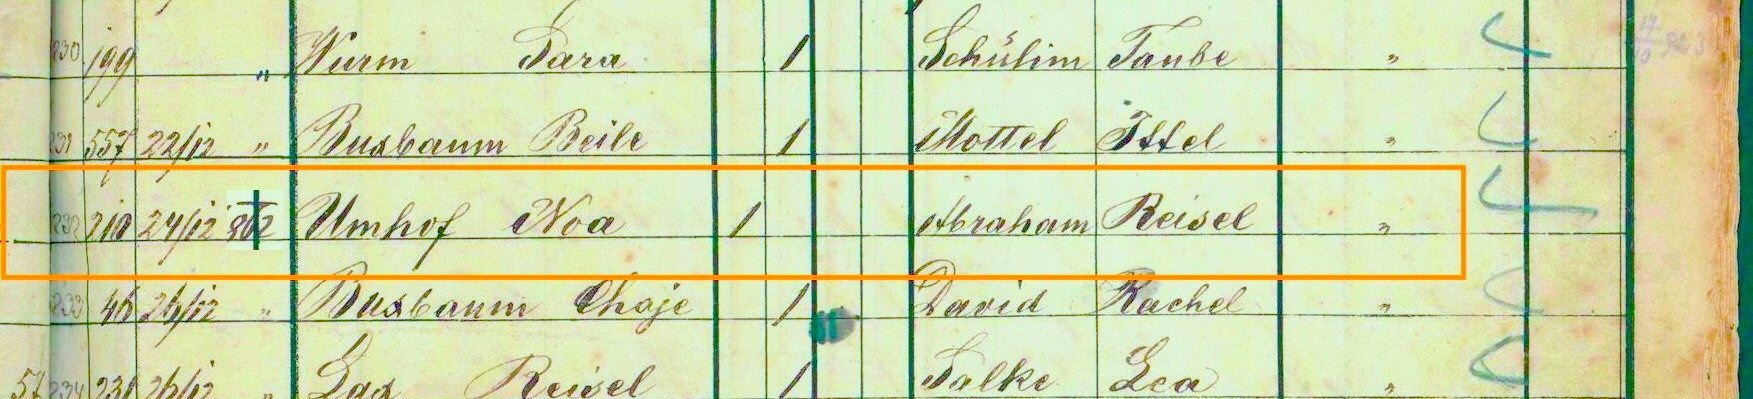 230 199 " Wurm Sara 1 Schülim Taube "
231 557 22/12 " Buxbaum Beile 1 Mottel Ittel "
232 210 24/12 Umhof Noa 1 Abraham Reisel "
233 46 24/12 " Buxbaum Chaje 1 David Rachel "
57 234 231 26/12 " Lax Reisel 1 Salke Lea "